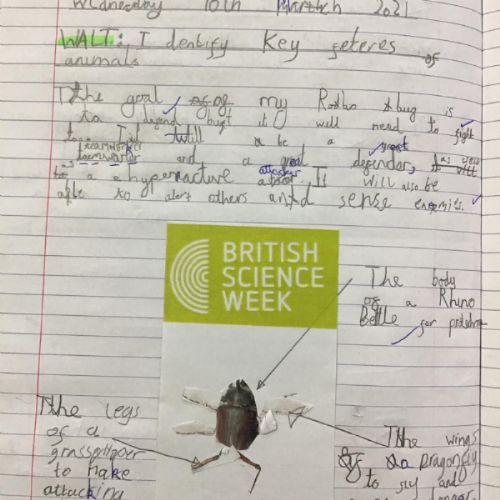 Wednesday 10th March 2021
WALT: I dentify Key feteres of
animals
The goal of my Robo bug is
to defend but it will need to fight
too. It will be a great
teamworker and a great defender, as well
as a hyperactive attacker. It will also be
able to alert others and sense enemies.
BRITISH
SCIENCE
WEEK
The body
of a Rhino
Bettle for
The legs
of a
grasshopper
to make
attacking
The wings
of a Dragonfly
to fly and